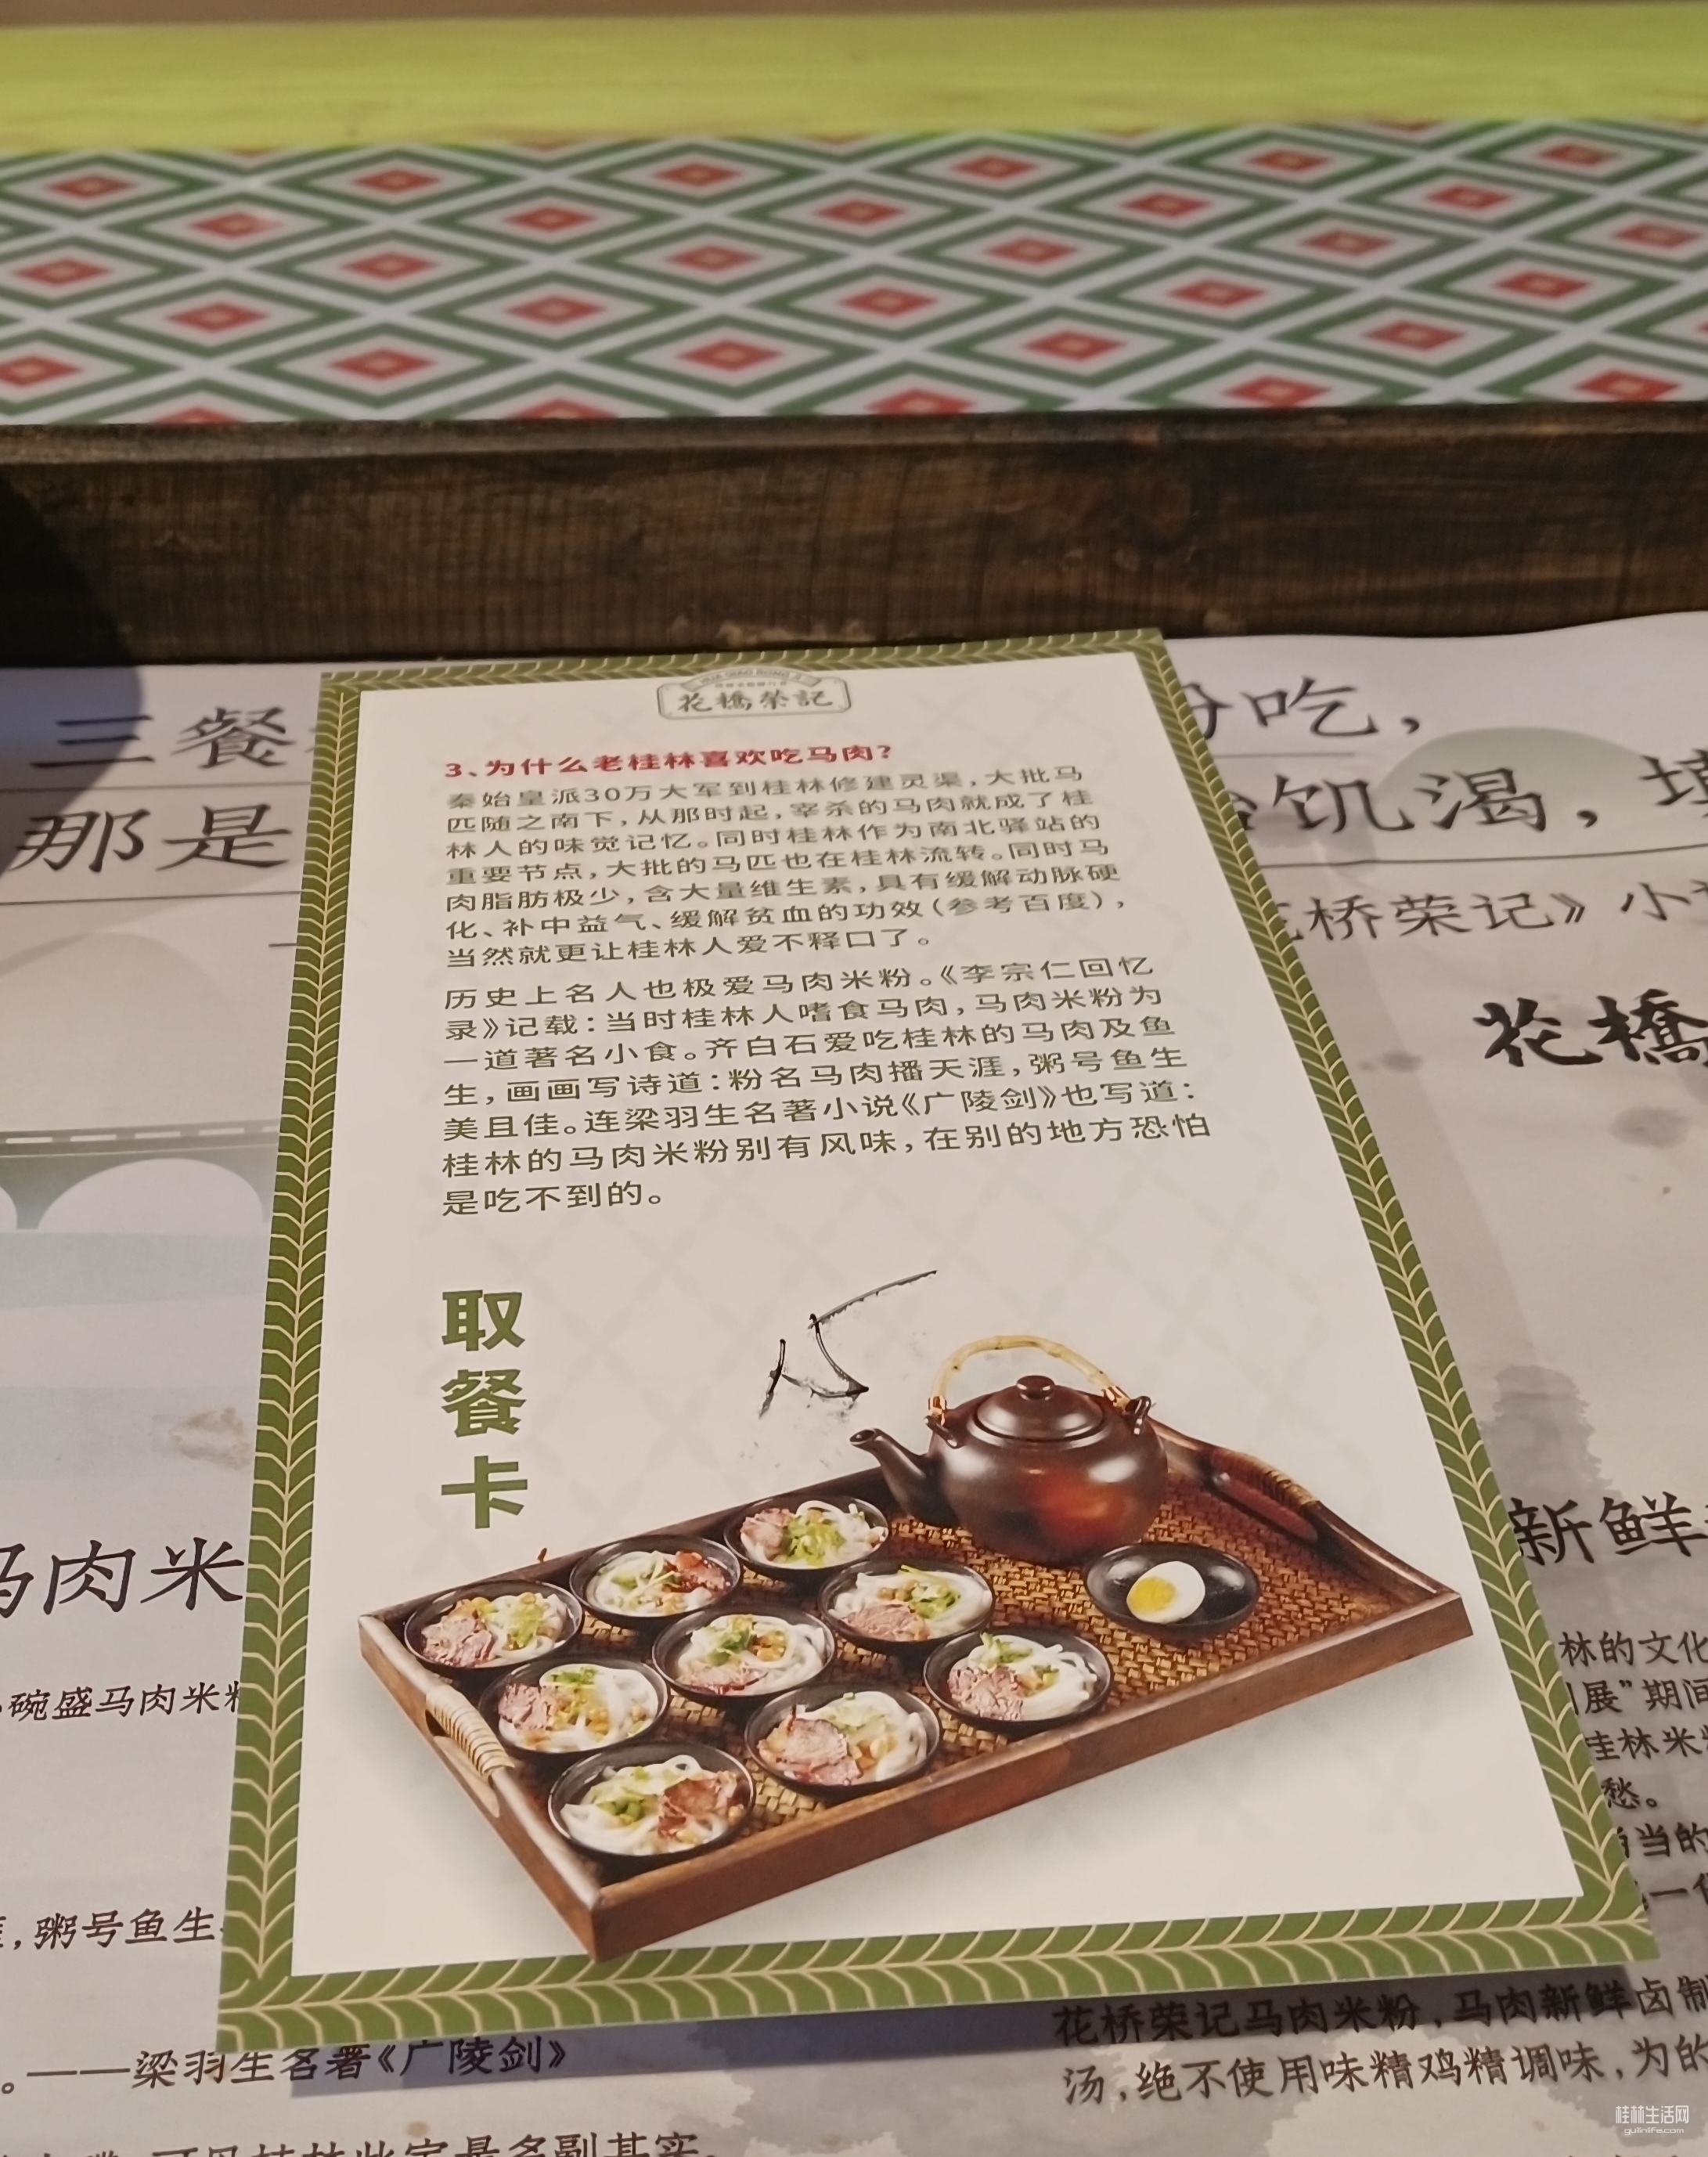 花橋榮記
3、为什么老桂林喜欢吃马肉？
秦始皇派30万大军到桂林修建灵渠，大批马
匹随之南下，从那时起，宰杀的马肉就成了桂
林人的味觉记忆。同时桂林作为南北驿站的
重要节点，大批的马匹也在桂林流转。同时马
肉脂肪极少，含大量维生素，具有缓解动脉硬
化、补中益气、缓解贫血的功效（参考百度），
当然就更让桂林人爱不释口了。
历史上名人也极爱马肉米粉。《李宗仁回忆
录》记载：当时桂林人嗜食马肉，马肉米粉为
一道著名小食。齐白石爱吃桂林的马肉及鱼
生，画画写诗道：粉名马肉播天涯，粥号鱼生
美且佳。连梁羽生名著小说《广陵剑》也写道：
桂林的马肉米粉别有风味，在别的地方恐怕
是吃不到的。
取餐卡
三餐
吃，
那是
饥渴，
桥荣记》小
花橋
马肉米
新鲜
碗盛马肉米
林的文化
展”期间
桂林米
愁。
当的
，粥号鱼生
。——梁羽生名著《广陵剑》
花桥荣记马肉米粉，马肉新鲜卤制
汤，绝不使用味精鸡精调味，为的
是名副其实。
桂林生活网
guilinlife.com